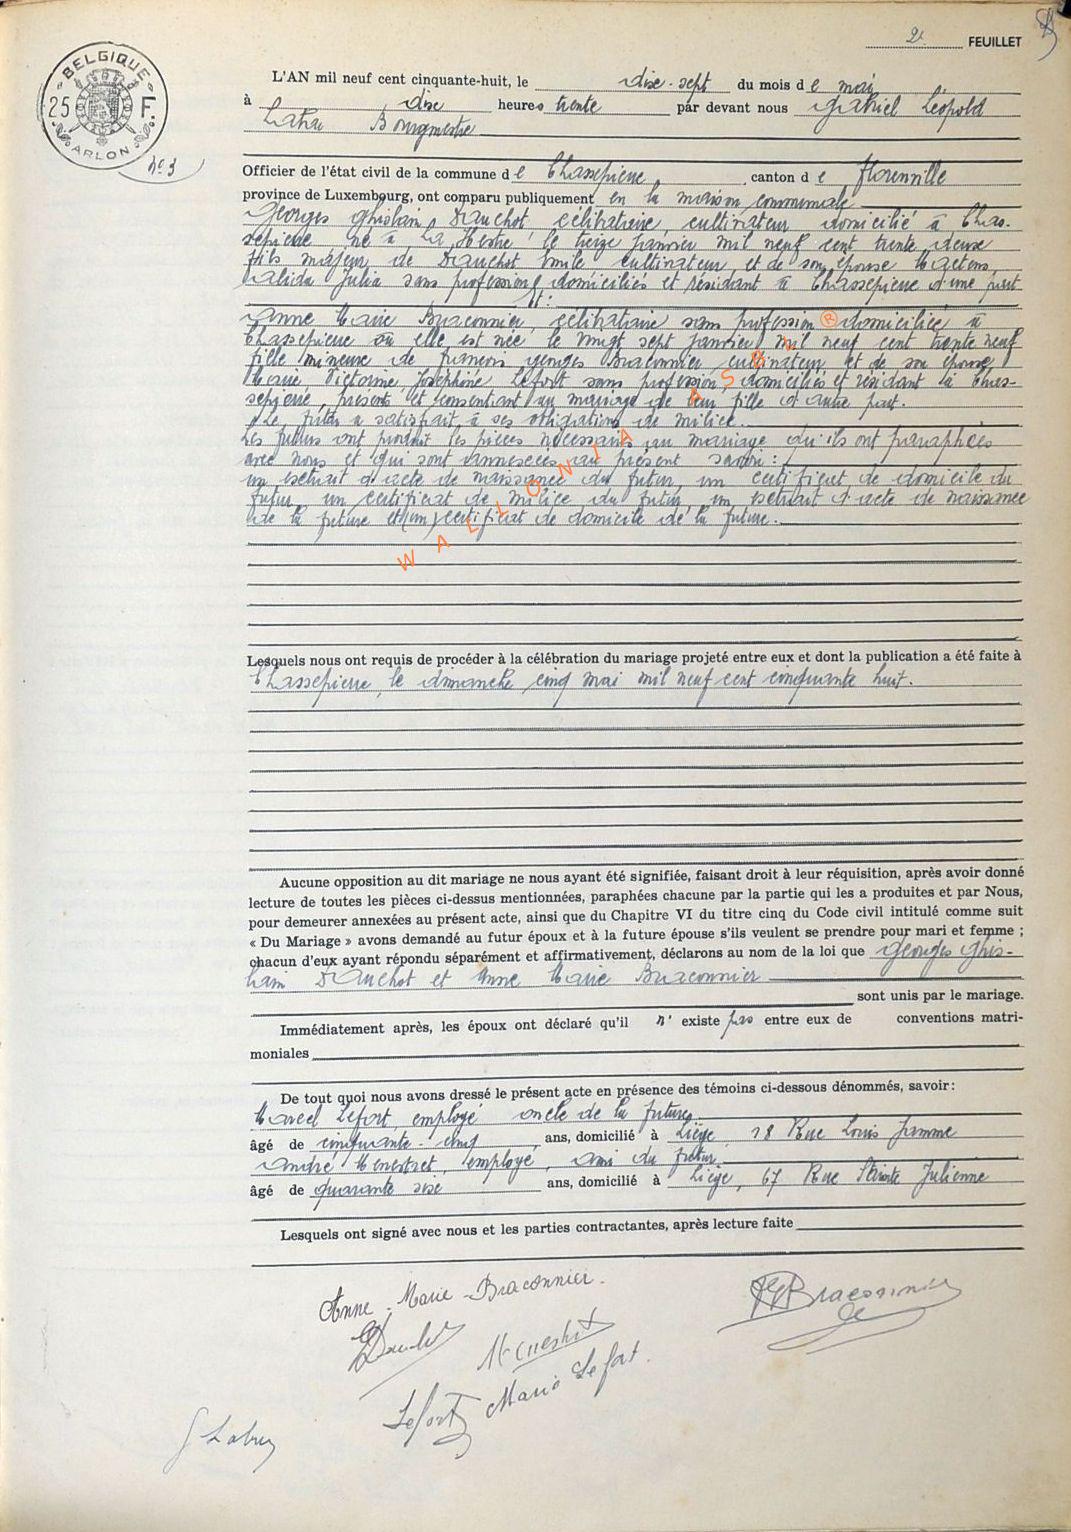 2e FEUILLET
BELGIQUE
25 F.
ARLON
N° 3
L'AN mil neuf cent cinquante-huit, le dix-sept du mois de mai
à dix heures trente par devant nous Gabriel Léopold
Bourgmestre
Officier de l'état civil de la commune de Chassepierre, canton de Florenville
province de Luxembourg, ont comparu publiquement en la maison communale
Georges Ghislain Dauchot, célibataire, cultivateur domicilié à Chas-
sepierre né à La Hestre le treize janvier mil neuf cent trente deux
fils majeur de Dauchot Emile cultivateur et de son épouse Maetens
Julia sans profession, domiciliés et résidant à Chassepierre d'une part
Et:
Anne Marie Braconnier, célibataire sans profession domiciliée à
Chassepierre où elle est née le vingt sept janvier mil neuf cent trente neuf
fille mineure de Georges Braconnier, cultivateur et de son épouse
Marie, Victorine, Joséphine Lefort sans profession, domiciliés et résidant à Chas-
sepierre, présents et consentant au mariage de leur fille d'autre part.
Le futur a satisfait à ses obligations de milice.
Les futurs ont produit les pièces nécessaires au mariage qu'ils ont paraphées
avec nous et qui sont annexées au présent savoir:
un extrait d'acte de naissance du futur, un certificat de domicile du
futur, un certificat de milice du futur, un extrait d'acte de naissance
de la future et (un) certificat de domicile de la future.
WALLONIA ASBL ®
Lesquels nous ont requis de procéder à la célébration du mariage projeté entre eux et dont la publication a été faite à
Chassepierre, le dimanche cinq mai mil neuf cent cinquante huit.
Aucune opposition au dit mariage ne nous ayant été signifiée, faisant droit à leur réquisition, après avoir donné
lecture de toutes les pièces ci-dessus mentionnées, paraphées chacune par la partie qui les a produites et par Nous,
pour demeurer annexées au présent acte, ainsi que du Chapitre VI du titre cinq du Code civil intitulé comme suit
« Du Mariage » avons demandé au futur époux et à la future épouse s'ils veulent se prendre pour mari et femme ;
chacun d'eux ayant répondu séparément et affirmativement, déclarons au nom de la loi que Georges Ghis-
lain Dauchot et Anne Marie Braconnier
sont unis par le mariage.
Immédiatement après, les époux ont déclaré qu'il n' existe pas entre eux de conventions matri-
moniales
De tout quoi nous avons dressé le présent acte en présence des témoins ci-dessous dénommés, savoir :
Marcel Lefort, employé oncle de la future
âgé de cinquante-cinq ans, domicilié à Liège, 28 Rue Louis Jamme
André Menestret, employé, ami du futur
âgé de quarante six ans, domicilié à Liège, 67 Rue Sainte Julienne
Lesquels ont signé avec nous et les parties contractantes, après lecture faite
Anne-Marie-Braconnier.
Braconnier
Menestret
Lefort Marie Lefort.